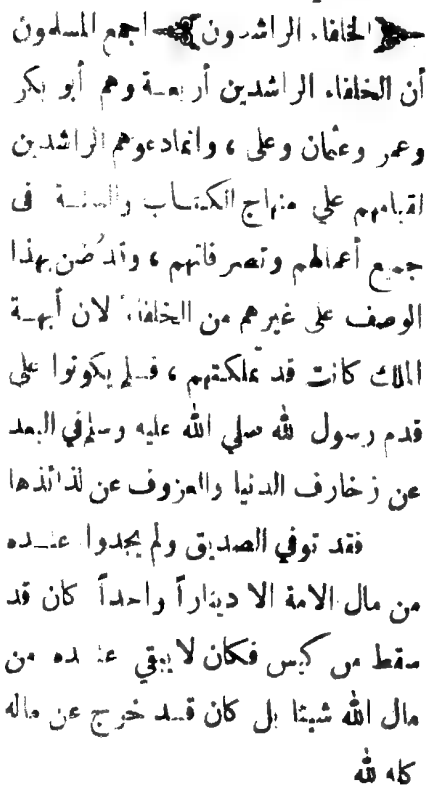 ﴿الخلفاء الراشدون﴾ اجمع المسلمون
أن الخلفاء الراشدين أربعة وهم أبو بكر
وعمر وعثمان وعلى ، وانما دعوهم الراشدين
لقيامهم علي منهاج الكتاب والسنة فى
جميع أعمالهم وتصرفاتهم ، وقد ضن بهذا
الوصف على غيرهم من الخلفاء لان أبهة
الملك كانت قد تملكتهم ، فلم يكونوا على
قدم رسول الله صلي الله عليه وسلم في البعد
عن زخارف الدنيا والعزوف عن لذائذها
فقد توفي الصديق ولم يجدوا عنده
من مال الامة الا ديناراً واحداً كان قد
سقط من كيس فكان لا يبقي عنده من
مال الله شيئا بل كان قد خرج عن ماله
كله لله